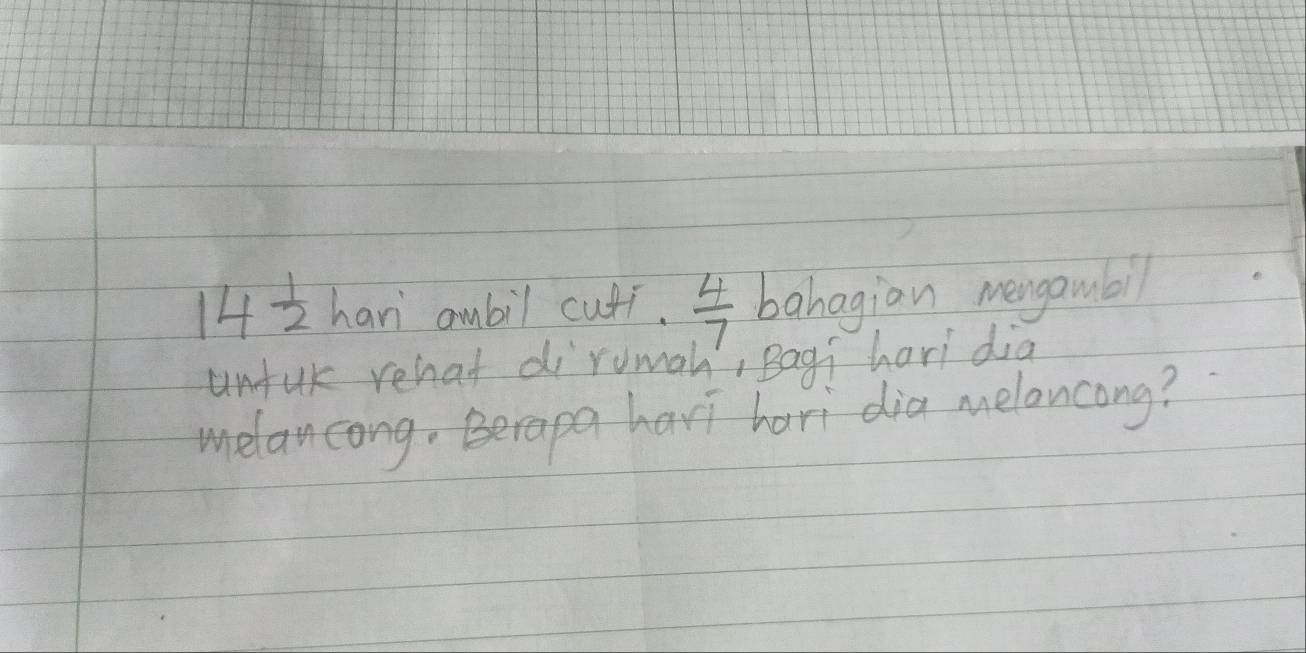 14 1/2 hari ambil cuti. 4/7 bahagian mengambil
untuk rehat di rumah, Bagi hari dia
melancong. Berapa hari hari dia melancong?